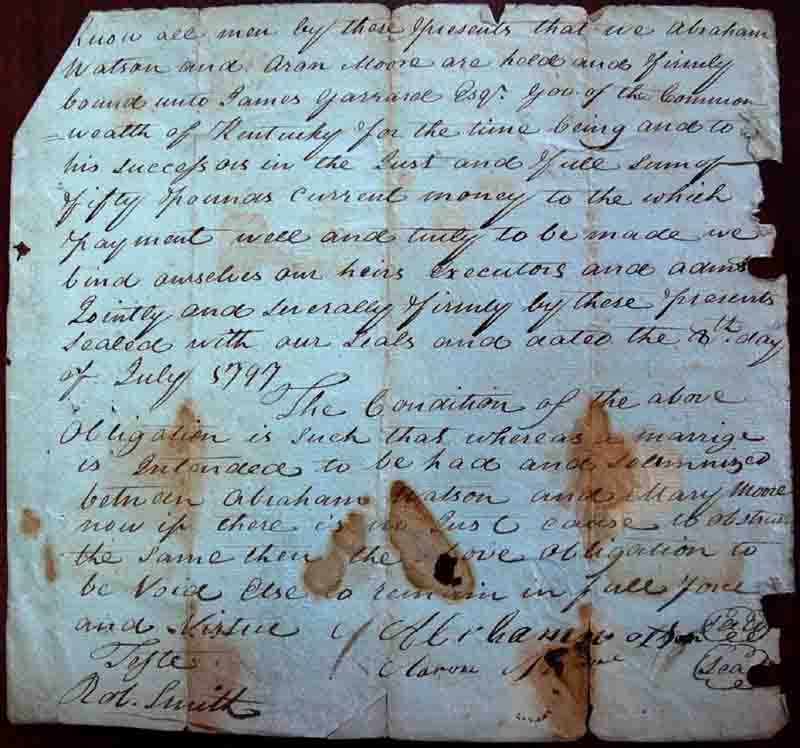 Know all men by these presents that we Abraham
Watson and Aron Moore are held and firmly
bound unto James Garrard Esqr. Gov. of the Common
=wealth of Kentucky for the time being and to
his successors in the Just and full sum of
fifty pounds Current money to the which
payment well and truly to be made we
bind ourselves our heirs executors and adms
Jointly and severally firmly by these presents
sealed with our seals and dated the 8th. day
of July 1797
The Condition of the above
Obligation is such that whereas a marrige
is Intended to be had and solemnized
between Abraham Watson and Mary Moore
now if there is no Just cause to obstruct
the same then the above obligation to
be Void Else to remain in full force
and Virtue Abraham Watson Seal
Teste Aaron Seal
Rob. Smith